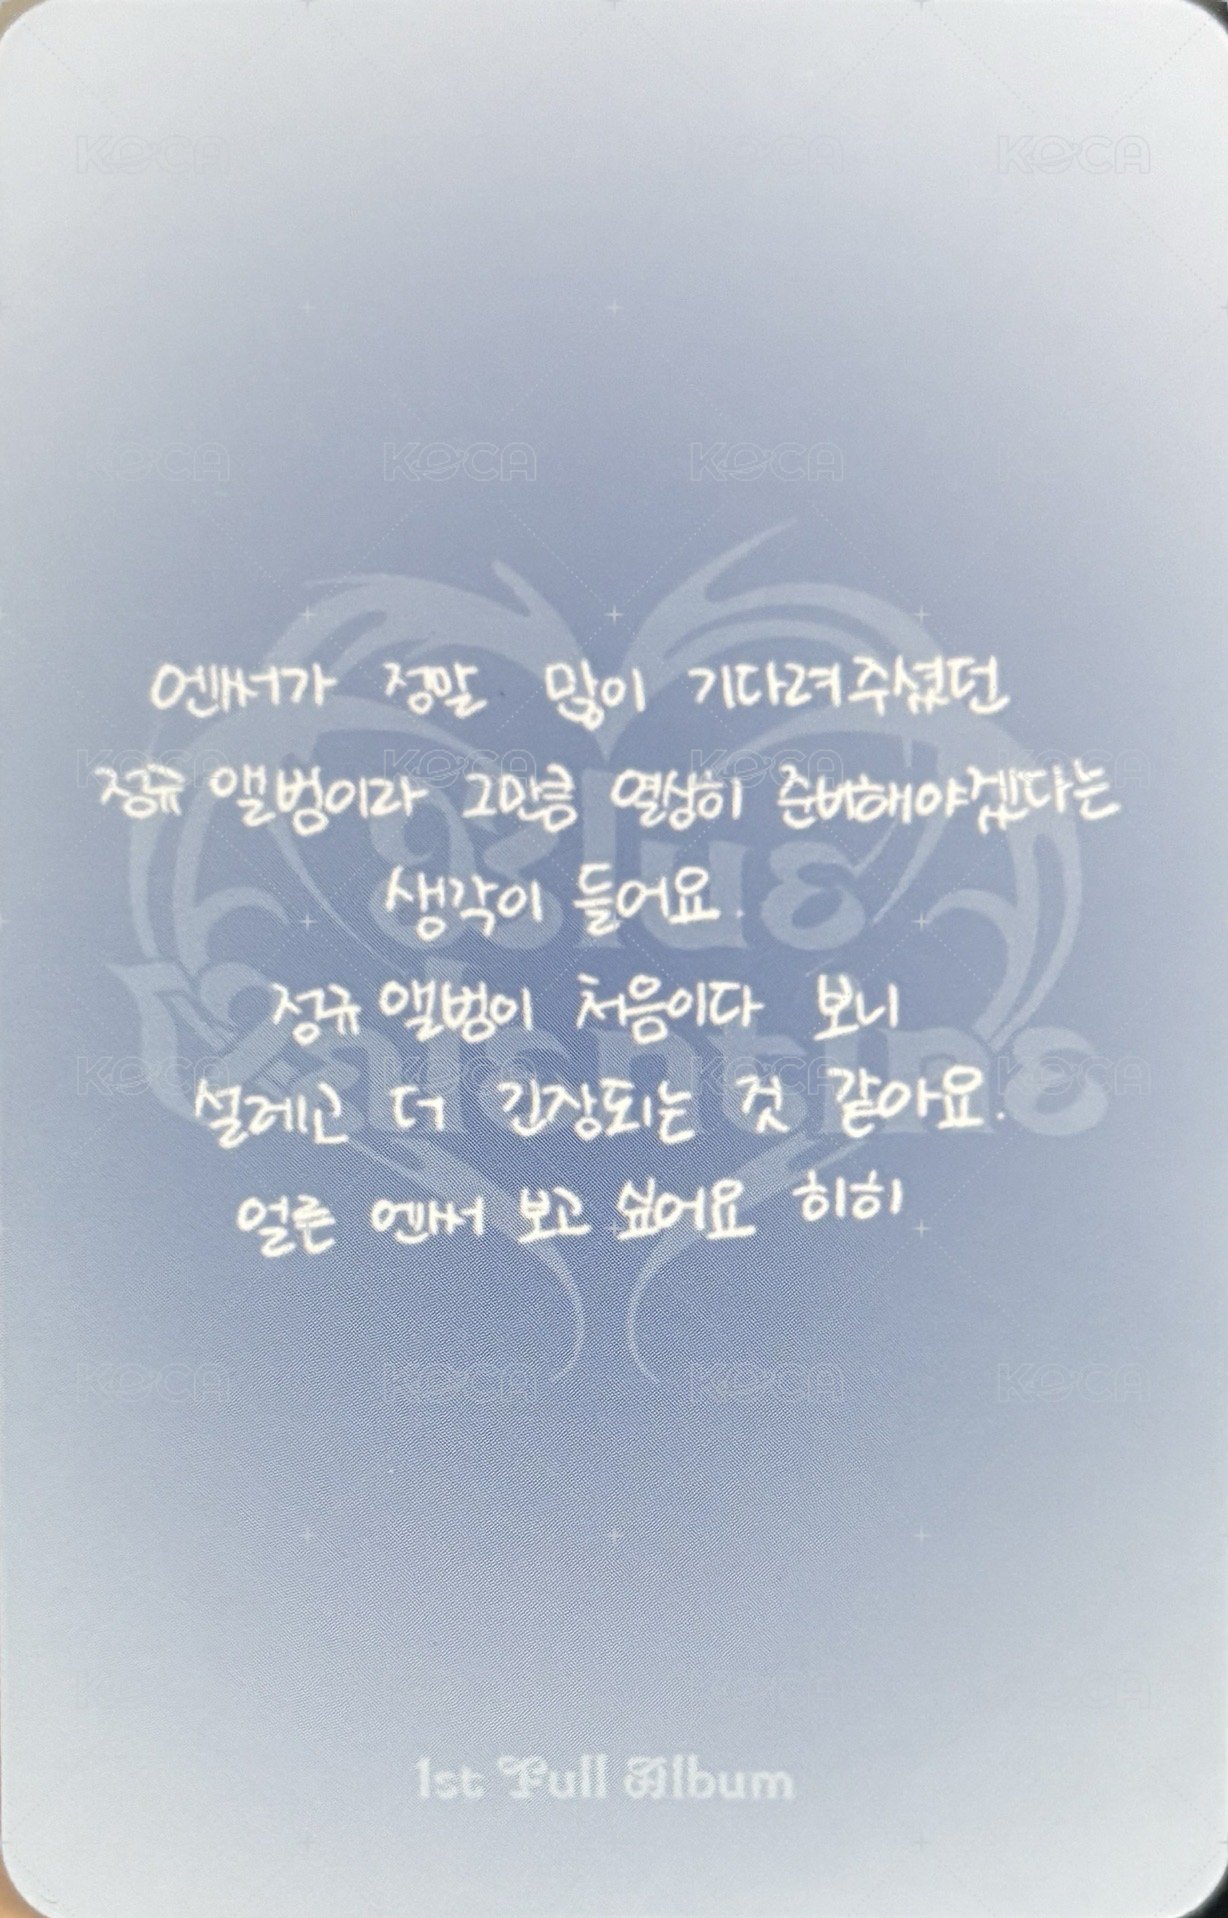 엔써가 정말 많이 기다려주셨던
정규 앨범이라 그만큼 열심히 준비해야겠다는
생각이 들어요.
정규 앨범이 처음이다 보니
설레고 더 긴장되는 것 같아요.
얼른 엔써 보고 싶어요 히히
Blue
Valentine
1st Full Album
KOCA